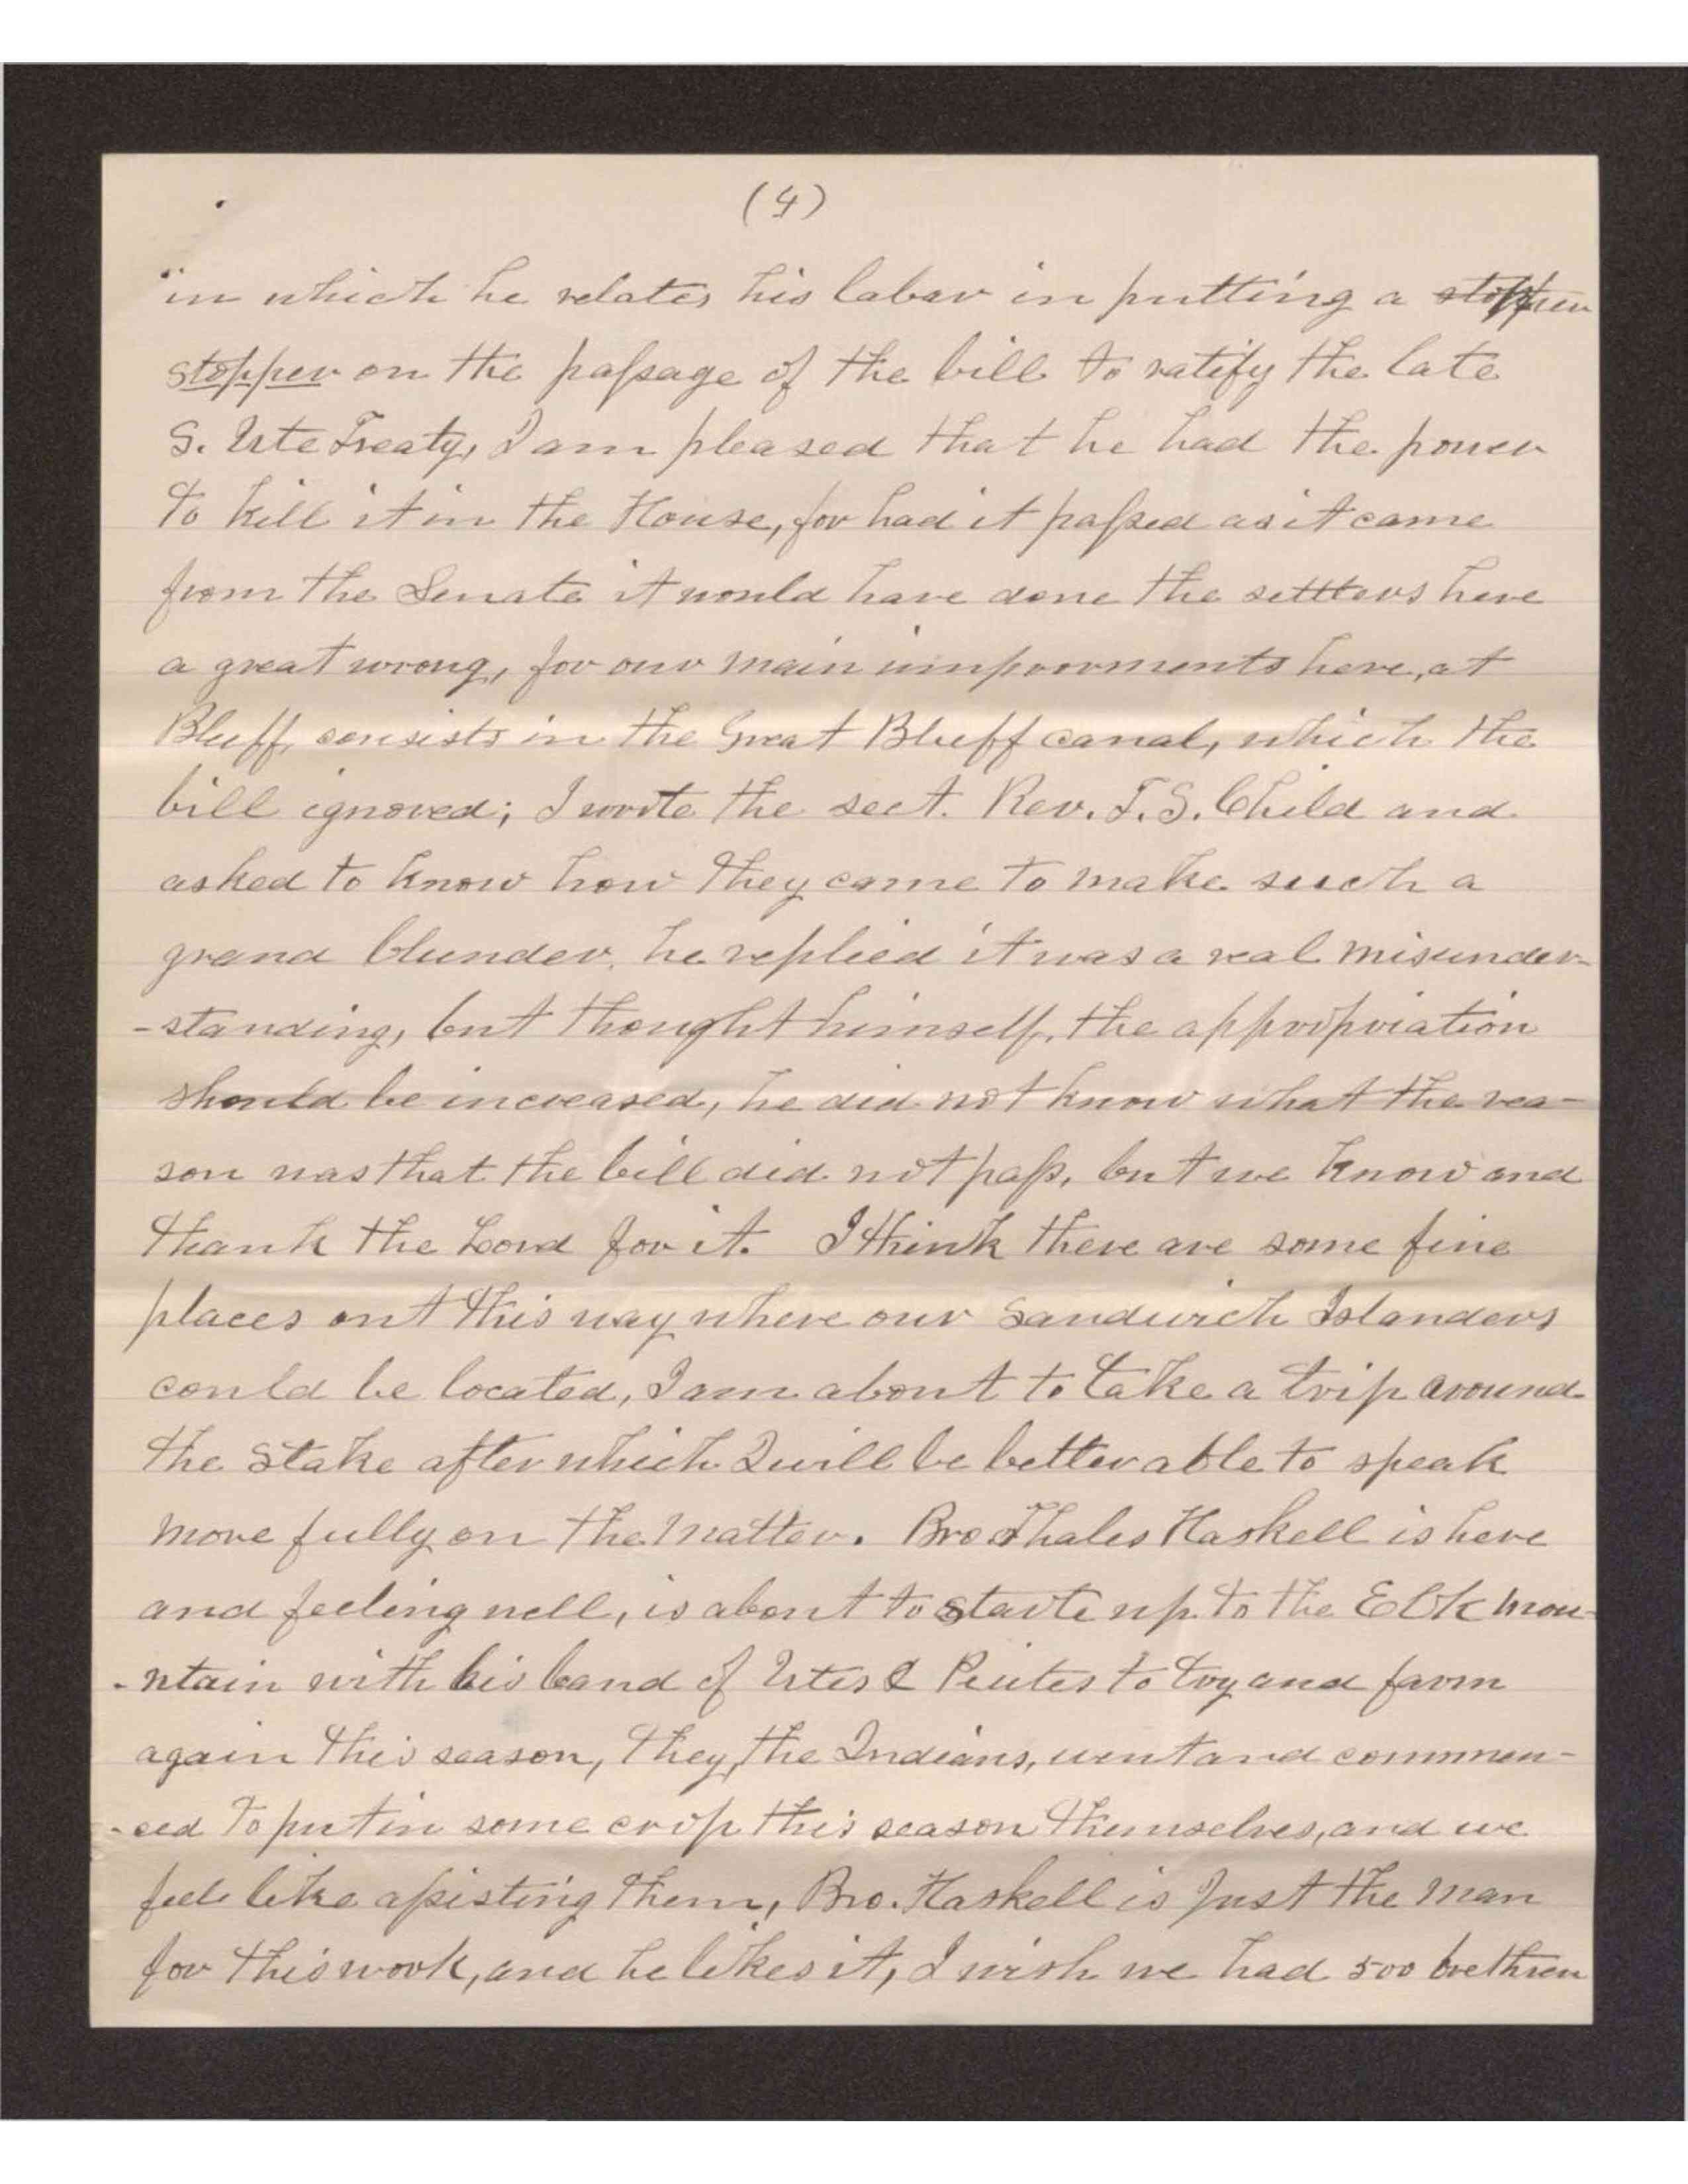 (4)
in which he relates his labor in putting a stoppen
stopper on the passage of the bill to ratify the late
S. Ute Treaty, I am pleased that he had the power
to kill it in the House, for had it passed as it came
from the Senate it would have done the setttlers here
a great wrong, for our main improvments here, at
Bluff, consists in the Great Bluff canal, which the
bill ignored; I wrote the sect. Rev. T. S. Child and
asked to know how they came to make such a
grand blunder, he replied it was a real misunder-
-standing, but thought himself, the appropriation
should be increased, he did not know what the rea-
son was that the bill did not pass, but we know and
thank the Lord for it. I think there are some fine
places out this way where our Sandwich Islanders
could be located, I am about to take a trip around
the Stake after which I will be better able to speak
more fully on the matter. Bro Thales Haskell is here
and feeling well, is about to starte up to the Elk mou-
-ntain with his band of Utes & Peiutes to try and farm
again this season, they, the Indians, went and commen-
-ced to put in some crop this season themselves, and we
feel like assisting them, Bro. Haskell is just the man
for this work, and he likes it, I wish we had 500 brethren